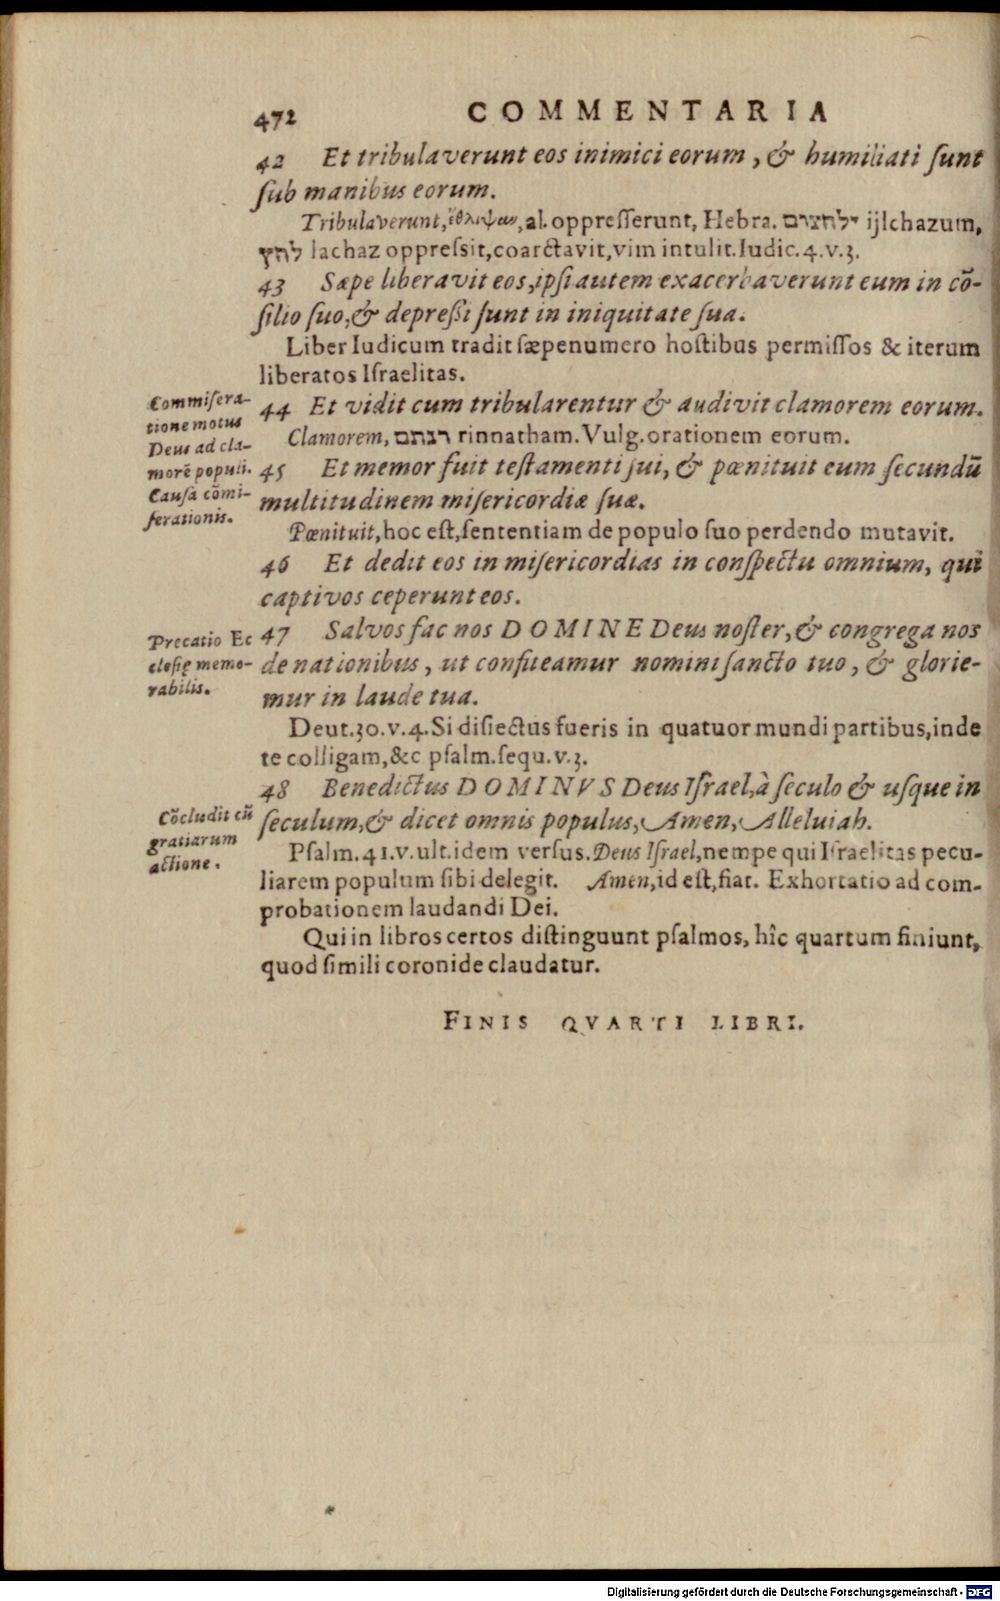 472 COMMENTARIA
42 Et tribulaverunt eos inimici eorum, & humiliati ſunt
ſub manibus eorum.
Tribulaverunt, ἔθλιψαν, al. oppreſſerunt, Hebra. ילחצום ijlchazum,
לחץ lachaz oppreſsit, coarctavit, vim intulit. Iudic. 4. v. 3.
43 Sæpe liberavit eos, ipſi autem exacerbaverunt eum in cõ-
ſilio ſuo, & depreſſi ſunt in iniquitate ſua.
Liber Iudicum tradit ſæpenumero hoſtibus permiſſos & iterum
liberatos Iſraelitas.
Commiſera-
tione motus
Deus ad cla-
morẽ populi.
Cauſa cõmi-
ſerationis.
44 Et vidit cum tribularentur & audivit clamorem eorum.
Clamorem, רנתם rinnatham. Vulg. orationem eorum.
45 Et memor fuit teſtamenti ſui, & pœnituit eum ſecundũ
multitudinem miſericordiæ ſuæ.
Pœnituit, hoc eſt, ſententiam de populo ſuo perdendo mutavit.
46 Et dedit eos in miſericordias in conſpectu omnium, qui
captivos ceperunt eos.
Precatio Ec
cleſię memo-
rabilis.
47 Salvos fac nos DOMINE Deus noſter, & congrega nos
de nationibus, ut confiteamur nomini ſancto tuo, & glorie-
mur in laude tua.
Deut. 30. v. 4. Si diſiectus fueris in quatuor mundi partibus, inde
te colligam, &c pſalm. ſequ. v. 3.
48 Benedictus DOMINVS Deus Iſrael, à ſeculo & uſque in
ſeculum, & dicet omnis populus, Amen, Alleluiah.
Cõcludit cũ
gratiarum
actione.
Pſalm. 41. v. ult. idem verſus. Deus Iſrael, nempe qui Iſraelitas pecu-
liarem populum ſibi delegit. Amen, id eſt, fiat. Exhortatio ad com-
probationem laudandi Dei.
Qui in libros certos diſtinguunt pſalmos, hîc quartum finiunt,
quod ſimili coronide claudatur.
FINIS QVARTI LIBRI.
Digitalisierung gefördert durch die Deutsche Forschungsgemeinschaft - DFG